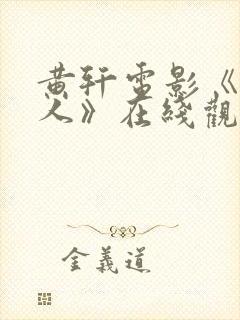 黄轩电影《
人》在綫觀
金義道